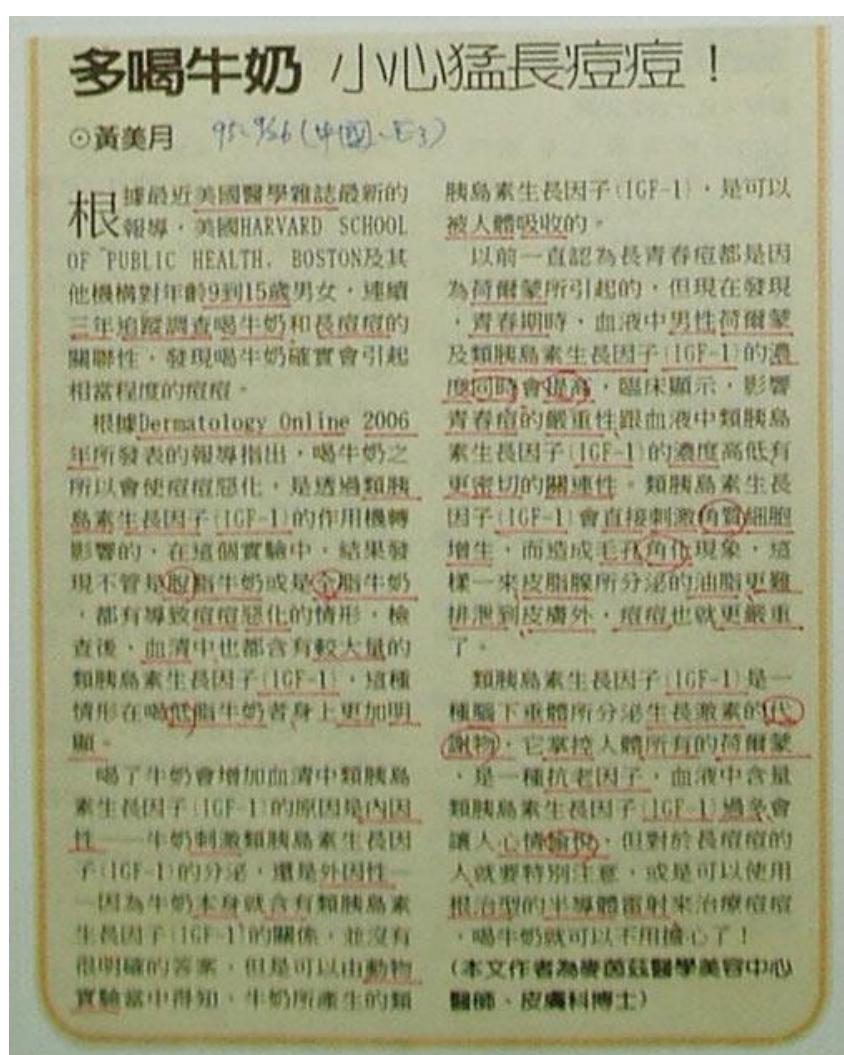 多喝牛奶 小心猛長痘痘！
⊙黃美月 95.9/26(中國、E3)
根據最近美國醫學雜誌最新的
報導，美國HARVARD SCHOOL
OF PUBLIC HEALTH. BOSTON及其
他機構對年齡9到15歲男女，連續
三年追蹤調查喝牛奶和長痘痘的
關聯性，發現喝牛奶確實會引起
相當程度的痘痘。
根據Dermatology Online 2006
年所發表的報導指出，喝牛奶之
所以會使痘痘惡化，是透過類胰
島素生長因子(IGF-1)的作用機轉
影響的，在這個實驗中，結果發
現不管是脫脂牛奶或是全脂牛奶
，都有導致痘痘惡化的情形，檢
查後，血清中也都含有較大量的
類胰島素生長因子(IGF-1)，這種
情形在喝低脂牛奶者身上更加明
顯。
喝了牛奶會增加血清中類胰島
素生長因子(IGF-1)的原因是內因
性——牛奶刺激類胰島素生長因
子(IGF-1)的分泌，還是外因性—
—因為牛奶本身就含有類胰島素
生長因子(IGF-1)的關係，並沒有
很明確的答案，但是可以由動物
實驗當中得知，牛奶所產生的類
胰島素生長因子(IGF-1)，是可以
被人體吸收的。
以前一直認為長青春痘都是因
為荷爾蒙所引起的，但現在發現
，青春期時，血液中男性荷爾蒙
及類胰島素生長因子(IGF-1)的濃
度同時會提高，臨床顯示，影響
青春痘的嚴重性跟血液中類胰島
素生長因子(IGF-1)的濃度高低有
更密切的關連性。類胰島素生長
因子(IGF-1)會直接刺激角質細胞
增生，而造成毛孔角化現象，這
樣一來皮脂腺所分泌的油脂更難
排泄到皮膚外，痘痘也就更嚴重
了。
類胰島素生長因子(IGF-1)是一
種腦下垂體所分泌生長激素的代
謝物，它掌控人體所有的荷爾蒙
，是一種抗老因子，血液中含量
類胰島素生長因子(IGF-1)過多會
讓人心情愉悅，但對於長痘痘的
人就要特別注意，或是可以使用
根治型的半導體雷射來治療痘痘
，喝牛奶就可以不用擔心了！
(本文作者為麥茵茲醫學美容中心
醫師、皮膚科博士)